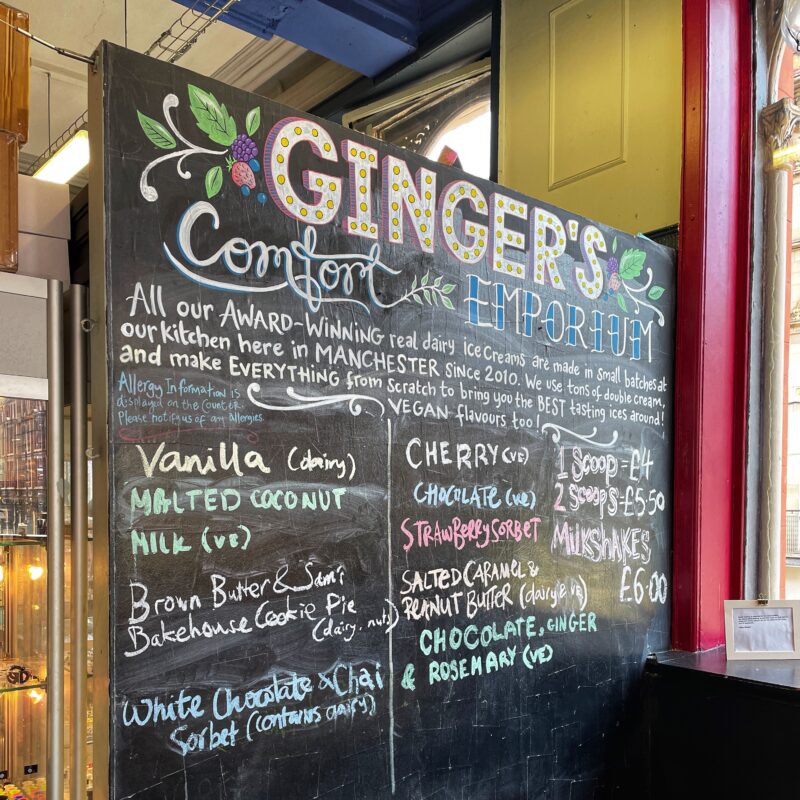 GINGER'S
Comfort
EMPORIUM
All our AWARD-WINNING real dairy ice creams are made in small batches at
our kitchen here in MANCHESTER since 2010. We use tons of double cream,
and make EVERYTHING from scratch to bring you the BEST tasting ices around!
VEGAN flavours too!
Allergy Information is
displayed on the counter.
Please notify us of any allergies.
Vanilla (dairy)
MALTED COCONUT
MILK (VE)
Brown Butter & Sam's
Bakehouse Cookie Pie
(dairy, nuts)
White Chocolate & Chai
Sorbet (contains dairy)
CHERRY (VE)
CHOCOLATE (VE)
STRAWBERRY SORBET
SALTED CARAMEL &
PEANUT BUTTER (dairy & VE)
CHOCOLATE, GINGER
& ROSEMARY (VE)
1 SCOOP = £4
2 SCOOPS - £5.50
MILKSHAKES
£6.00